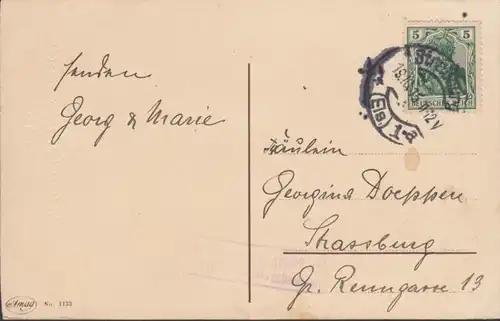 senden
Georg & Marie
5 5
DEUTSCHES REICH
(Els.)
Fräulein
Georgina Doeppen
Strassburg
Gr. Renngasse 13
Amag No. 1133